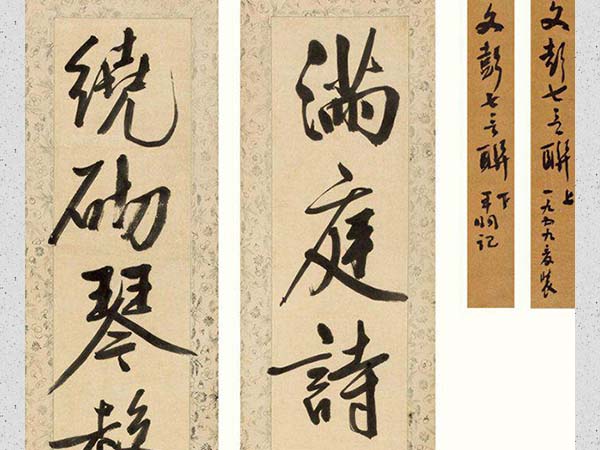 文彭七言聯 上
一九五九
文彭七言聯 下
記
滿庭詩
繞砌琴聲